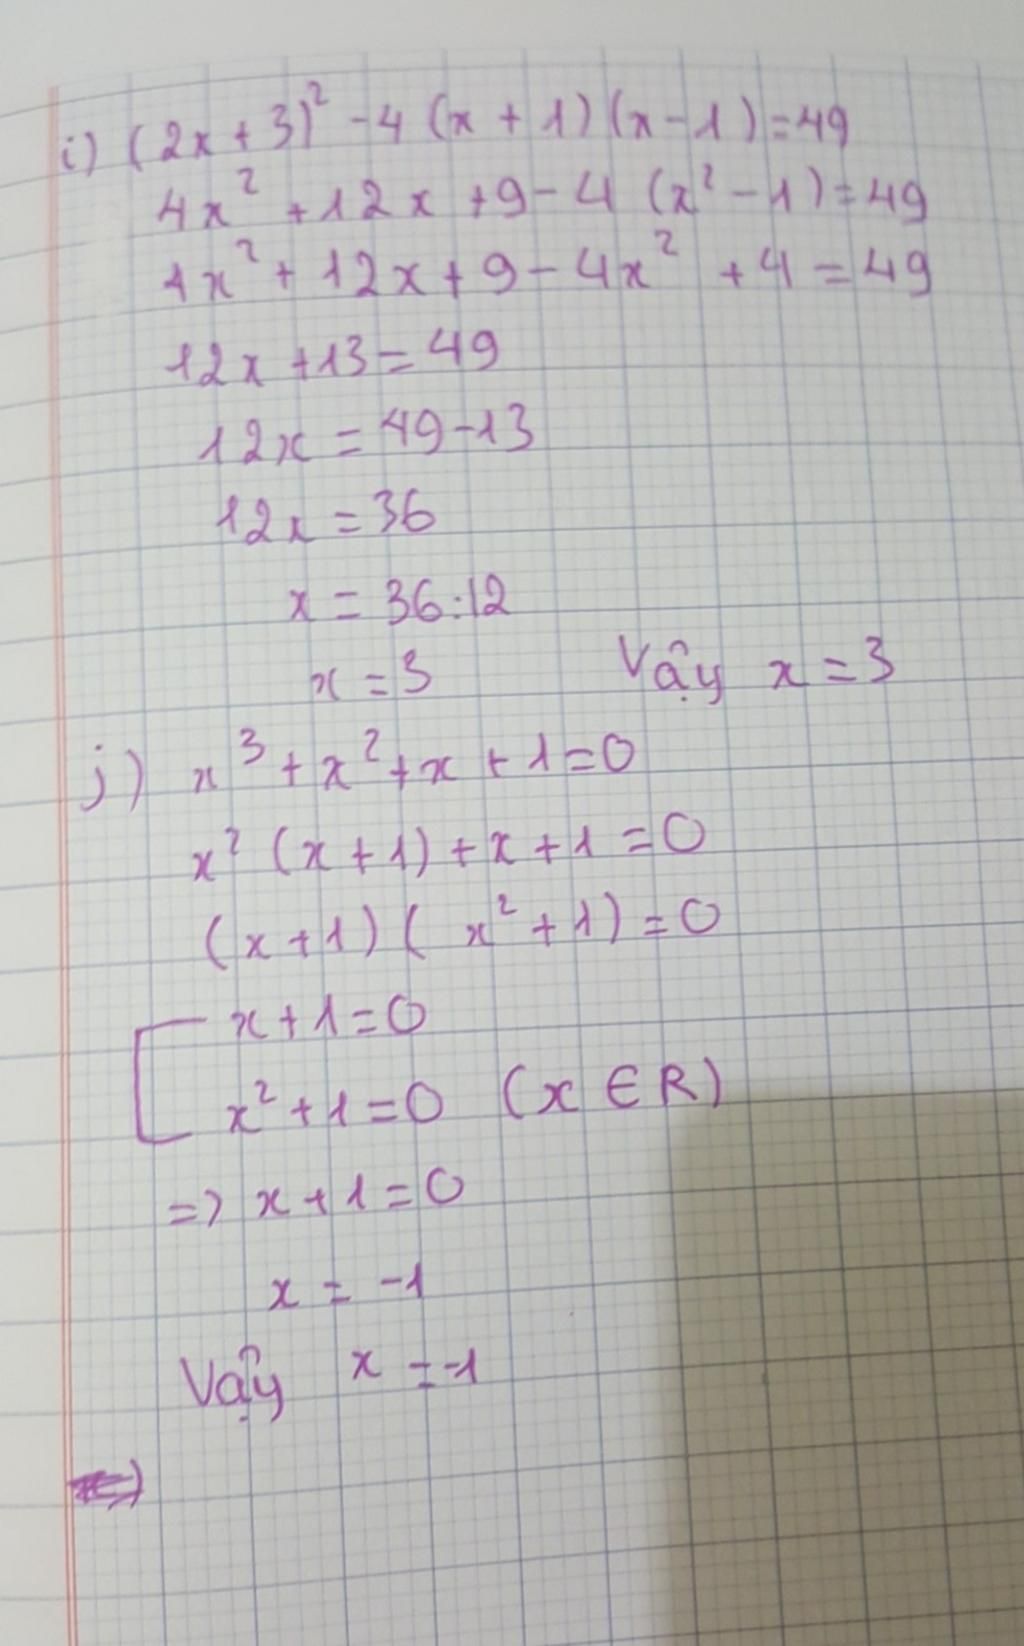 i) (2x + 3)² - 4 (x + 1) (x - 1) = 49
4x² + 12x + 9 - 4 (x² - 1) = 49
4x² + 12x + 9 - 4x² + 4 = 49
12x + 13 = 49
12x = 49 - 13
12x = 36
x = 36 : 12
x = 3 Vậy x = 3
j) x³ + x² + x + 1 = 0
x² (x + 1) + x + 1 = 0
(x + 1) ( x² + 1) = 0
x + 1 = 0
x² + 1 = 0 (x ∈ R)
=> x + 1 = 0
x = -1
Vậy x = -1